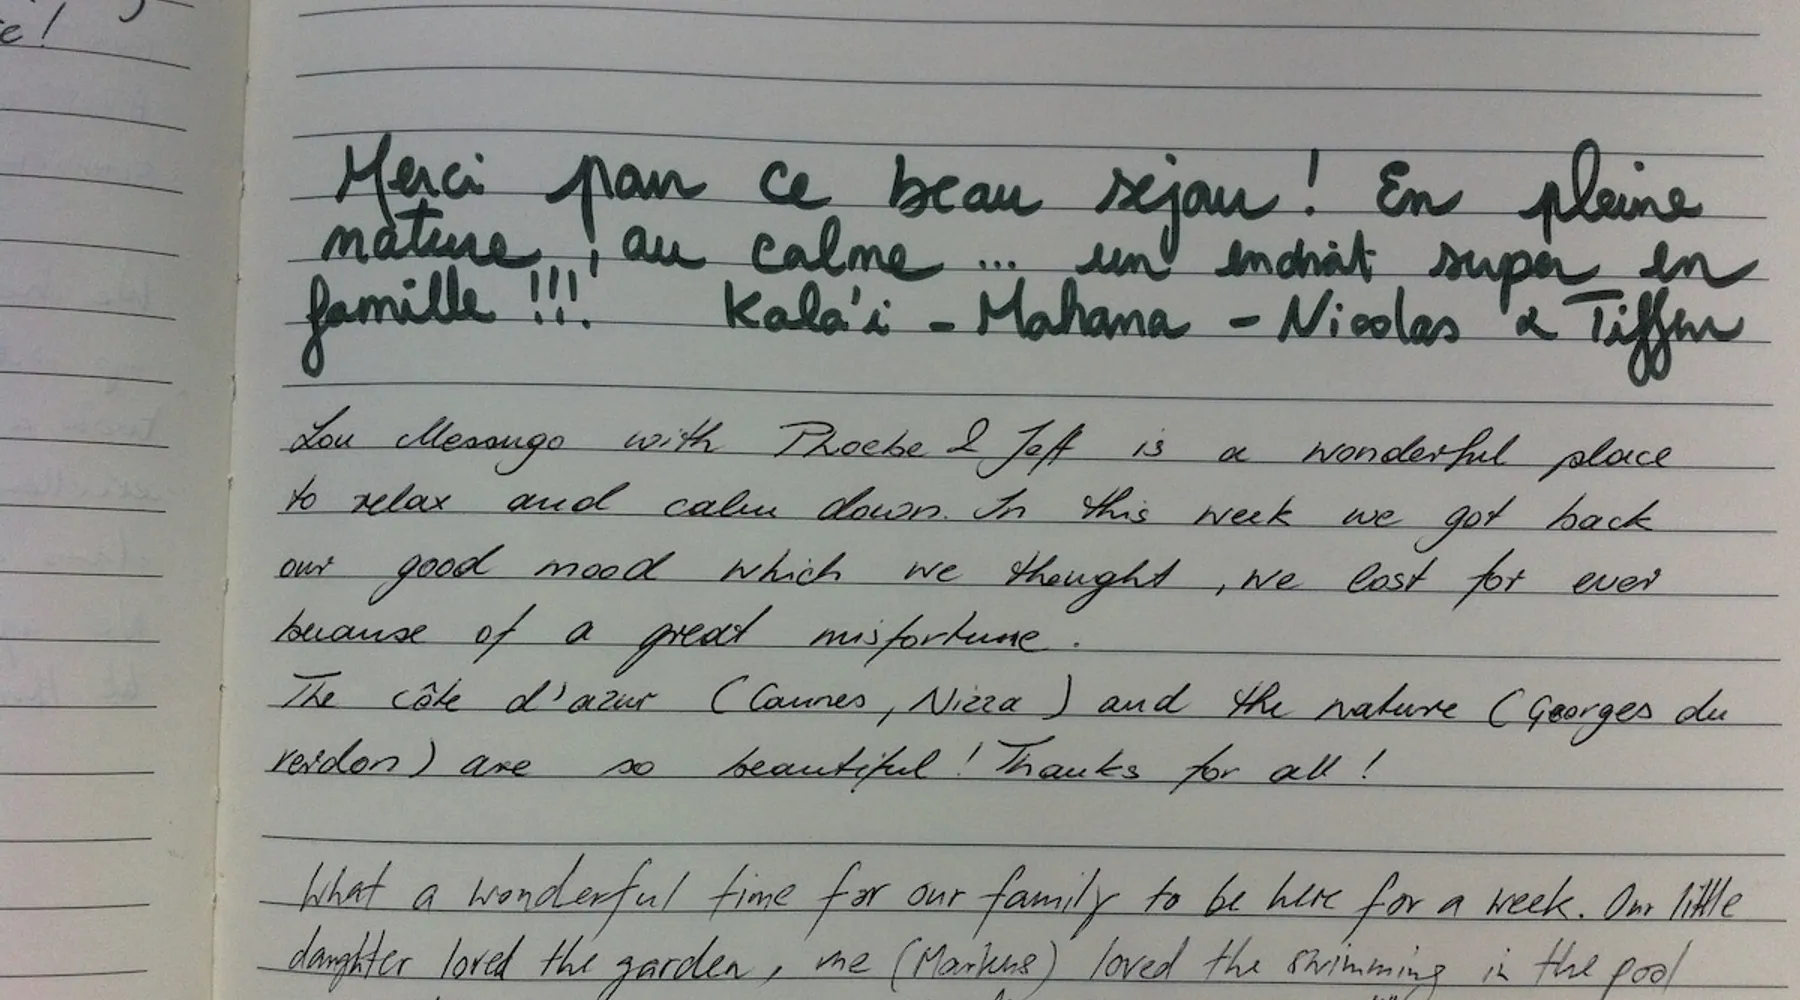 e!
Merci pour ce beau séjour ! En pleine
nature, au calme ... un endroit super en
famille !!! Kala'i - Mahana - Nicolas & Tiffen
Lou Messugo with Phoebe & Jeff is a wonderful place
to relax and calm down. In this week we got back
our good mood which we thought , we lost for ever
because of a great misfortune.
The côte d'azur (Cannes, Nizza) and the nature (Georges du
verdon) are so beautiful! Thanks for all!
What a wonderful time for our family to be here for a week. Our little
daughter loved the garden, me (Markus) loved the swimming in the pool